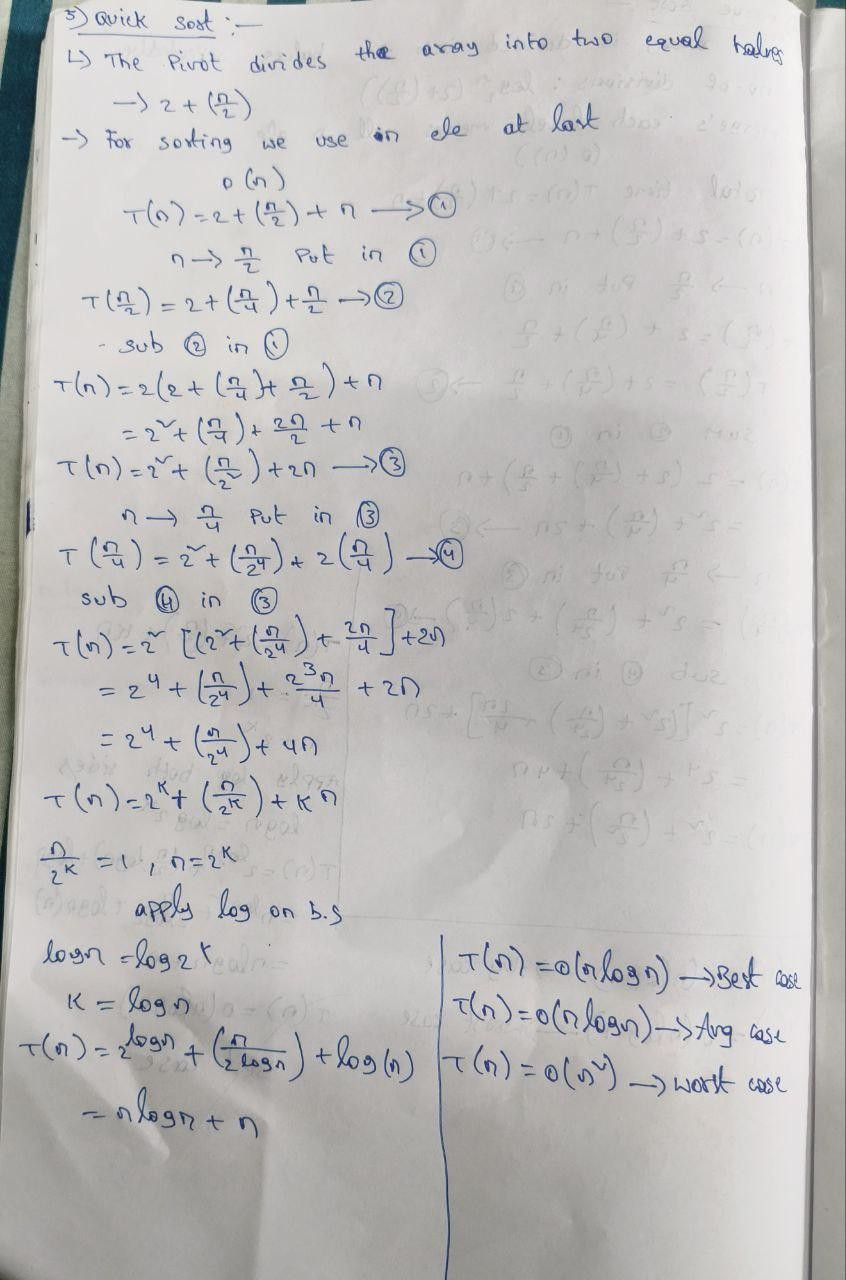 5) Quick Sost :-
↳ The Pivot divides the array into two equal halves
→ 2 + (n/2)
→ For sorting we use in ele at last
o (n)
T(n) = 2 + (n/2) + n → ①
n → n/2 Put in ①
T(n/2) = 2 + (n/4) + n/2 → ②
- sub ② in ①
T(n) = 2(2 + (n/4) + n/2) + n
= 2² + (n/4) + 2n/2 + n
T(n) = 2² + (n/2²) + 2n → ③
n → n/4 Put in ③
T(n/4) = 2² + (n/2⁴) + 2(n/4) → ④
sub ④ in ③
T(n) = 2² [(2² + (n/2⁴) + 2n/4] + 2n
= 2⁴ + (n/2⁴) + 2³n/4 + 2n
= 2⁴ + (n/2⁴) + 4n
T(n) = 2ᴷ + (n/2ᴷ) + K n
n/2ᴷ = 1, n = 2ᴷ
apply log on b.s
logn = log2ᴷ
K = logn
T(n) = 2^logn + (n/2logn) + log(n)
= nlogn + n
T(n) = o(nlogn) → Best case
T(n) = o(nlogn) → Avg case
T(n) = o(n²) → worst case